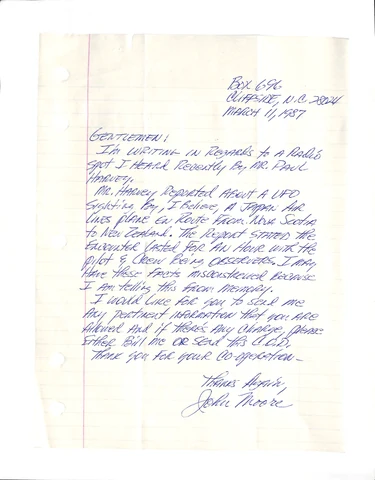 Box 696
Cliffside, N.C. 28024
March 11, 1987
Gentlemen:
I'm writing in regards to a radio
spot I heard recently by Mr. Paul
Harvey.
Mr. Harvey reported about a UFO
sighting by, I believe, a Japan Air
Lines plane en route from Nova Scotia
to New Zealand. The report stated the
encounter lasted for an hour with the
pilot & crew being observers. I may
have these facts misconstrued because
I am telling this from memory.
I would like for you to send me
any pertinent information that you are
allowed and if there's any charge, please
either bill me or send this C.O.D.
Thank you for your co-operation-
Thanks Again,
John Moore